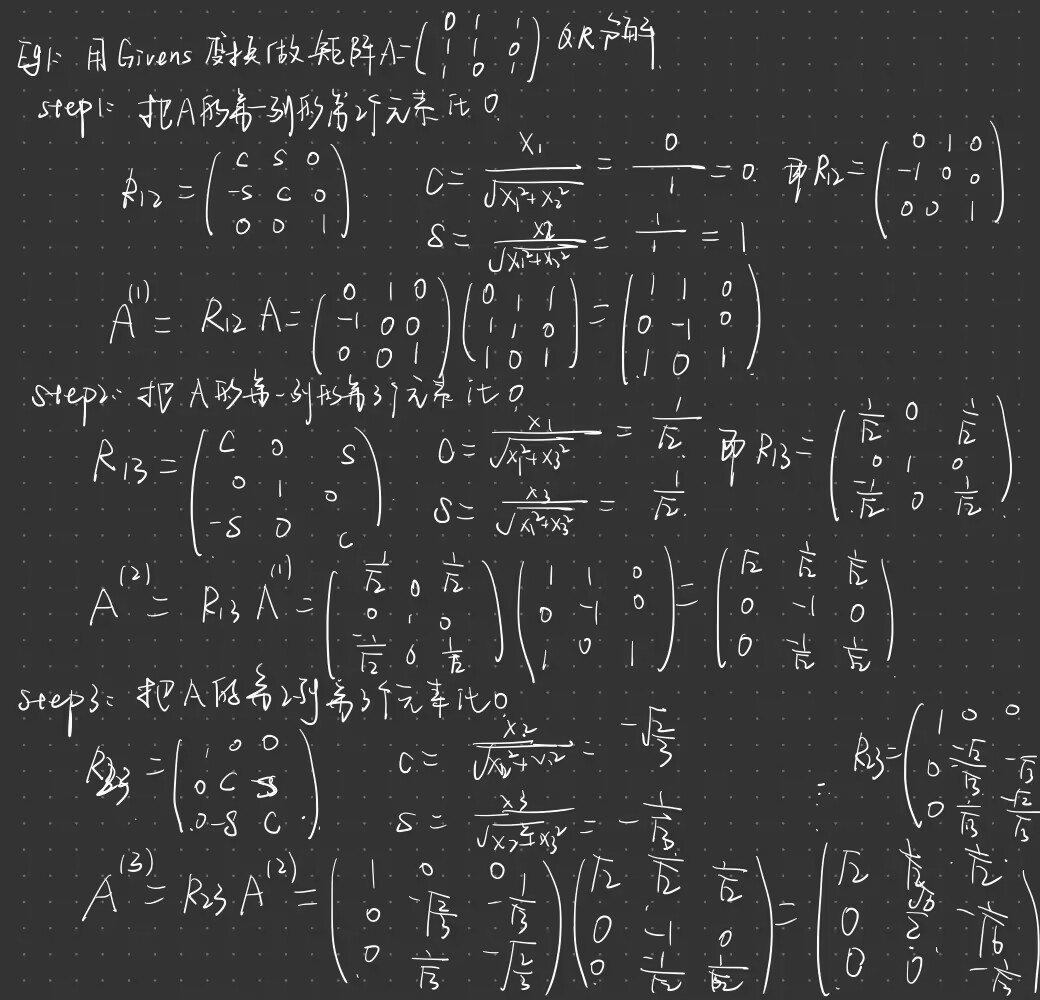 Eg1: 用 Givens 变换做矩阵 A=(0 1 1; 1 1 0; 1 0 1) QR分解
step1: 把A的第一列的第2个元素化0
R12 = (c s 0; -s c 0; 0 0 1) c = x1/√(x1²+x2²) = 0/1 = 0. 即 R12 = (0 1 0; -1 0 0; 0 0 1)
s = x2/√(x1²+x2²) = 1/1 = 1
A^(1) = R12 A = (0 1 0; -1 0 0; 0 0 1)(0 1 1; 1 1 0; 1 0 1) = (1 1 0; 0 -1 0; 1 0 1)
step2: 把A的第一列的第3个元素化0
R13 = (c 0 s; 0 1 0; -s 0 c) c = x1/√(x1²+x3²) = 1/√2 即 R13 = (1/√2 0 1/√2; 0 1 0; -1/√2 0 1/√2)
s = x3/√(x1²+x3²) = 1/√2.
A^(2) = R13 A^(1) = (1/√2 0 1/√2; 0 1 0; -1/√2 0 1/√2)(1 1 0; 0 -1 0; 1 0 1) = (√2 1/√2 1/√2; 0 -1 0; 0 -1/√2 1/√2)
step3: 把A的第2列第3个元素化0
R23 = (1 0 0; 0 c s; 0 -s c) c = x2/√(x2²+x3²) = -√(2/3) ∴ R23 = (1 0 0; 0 -√2/√3 -1/√3; 0 1/√3 -√2/√3)
s = x3/√(x2²+x3²) = -1/√3
A^(3) = R23 A^(2) = (1 0 0; 0 -√(2/3) -1/√3; 0 1/√3 -√(2/3))(√2 1/√2 1/√2; 0 -1 0; 0 -1/√2 1/√2) = (√2 1/√2 1/√2; 0 √6/2 -1/√6; 0 0 -1/√3)